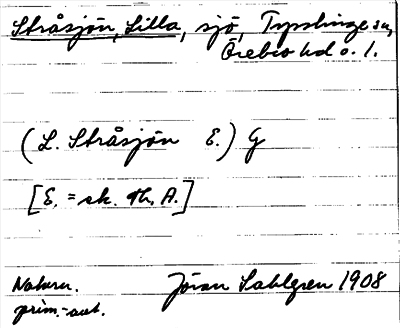 Stråsjön, Lilla, sjö, Tysslinge sn,
Örebro hd o. l.
(L. Stråsjön E.) G
[E. = sk. Th. A.]
Naturn.
prim.-aut.
Jöran Sahlgren 1908